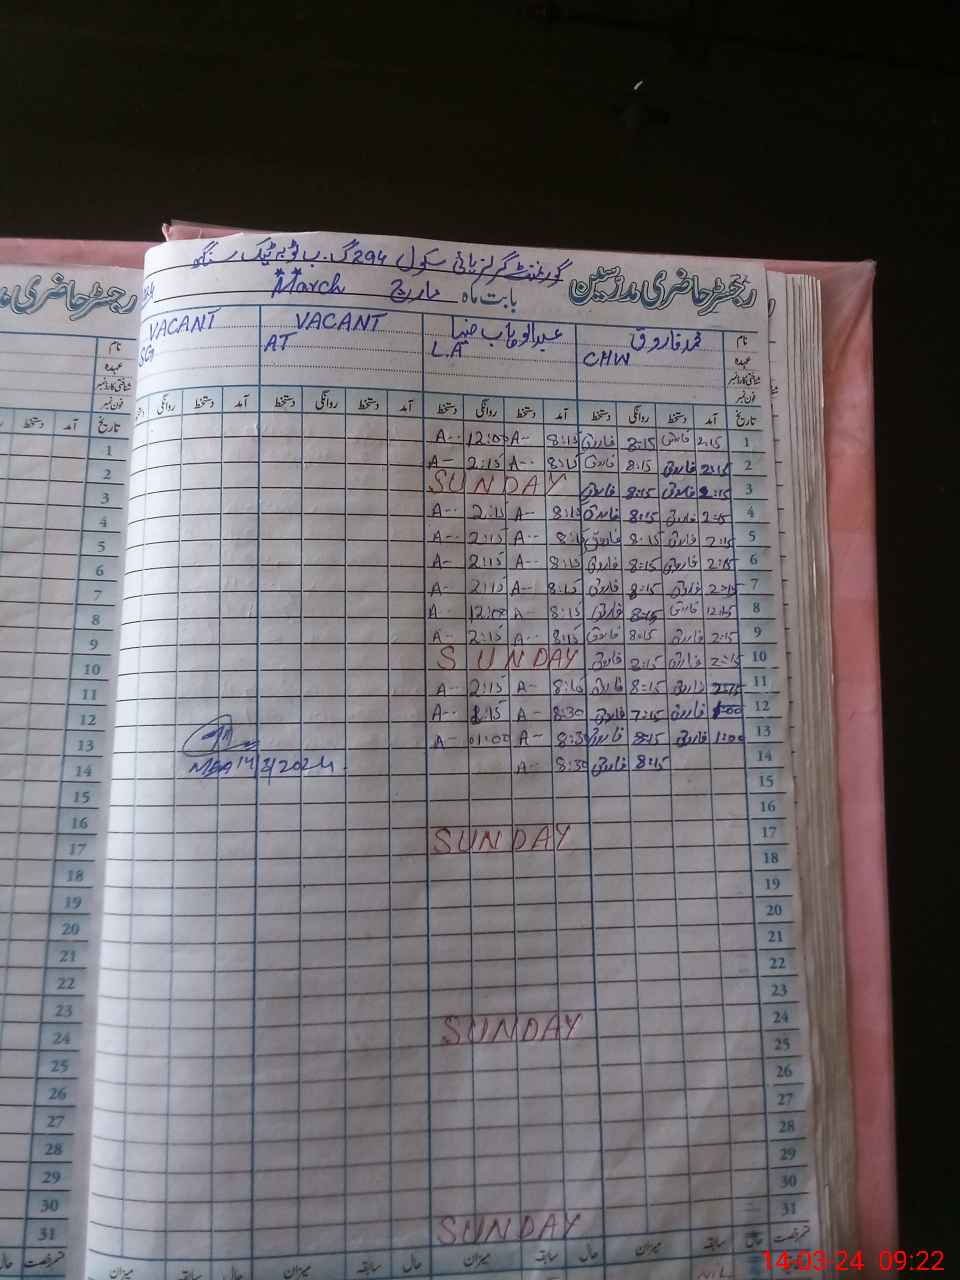 گورنمنٹ گرلز ہائی سکول 294 گ۔ب ٹوبہ ٹیک سنگھ
رجسٹر حاضری مدرسین بابت ماہ مارچ March
رجسٹر حاضری
نام محمد فاروق عبدالوہاب ضیا VACANT VACANT
عہدہ CHW L.A AT
شناختی کارڈ نمبر
فون نمبر
تاریخ آمد دستخط روانگی دستخط آمد دستخط روانگی دستخط آمد دستخط روانگی دستخط آمد دستخط روانگی
1 2:15 فاروق 8:15 فاروق 8:15 A-- 12:00 A--
2 2:15 فاروق 8:15 فاروق 8:15 A-- 2:15 A--
3 2:15 فاروق 8:15 فاروق SUNDAY
4 2:15 فاروق 8:15 فاروق 8:15 A-- 2:15 A--
5 2:15 فاروق 8:15 فاروق 8:15 A-- 2:15 A--
6 2:15 فاروق 8:15 فاروق 8:15 A-- 2:15 A--
7 2:15 فاروق 8:15 فاروق 8:15 A-- 2:15 A--
8 12:15 فاروق 8:15 فاروق 8:15 A-- 12:00 A--
9 2:15 فاروق 8:15 فاروق 8:15 A-- 2:15 A--
10 2:15 فاروق 2:15 فاروق SUNDAY
11 2:15 فاروق 8:15 فاروق 8:15 A-- 2:15 A--
12 1:00 فاروق 7:15 فاروق 8:30 A-- 1:15 A--
13 1:00 فاروق 8:15 فاروق 8:30 A-- 01:00 A--
14 8:15 فاروق 8:30 A-- 14/3/2024
15
16
17 SUNDAY
18
19
20
21
22
23
24 SUNDAY
25
26
27
28
29
30
31 SUNDAY
حال سابقہ میزان حال سابقہ میزان حال سابقہ میزان حال سابقہ میزان
تاریخ آمد دستخط
1
2
3
4
5
6
7
8
9
10
11
12
13
14
15
16
17
18
19
20
21
22
23
24
25
26
27
28
29
30
31
قسم رخصت حال
14-03-24 09:22